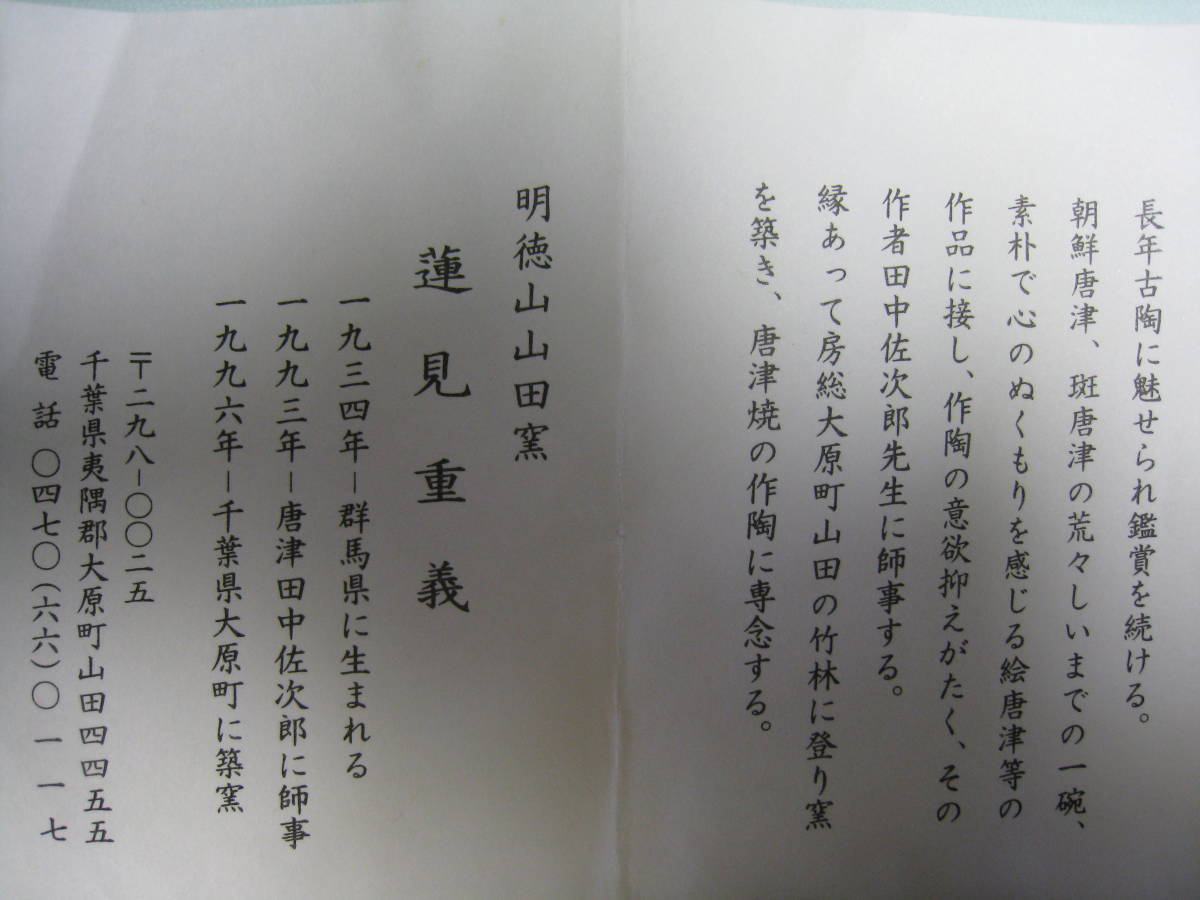 長年古陶に魅せられ鑑賞を続ける。
朝鮮唐津、斑唐津の荒々しいまでの一碗、
素朴で心のぬくもりを感じる絵唐津等の
作品に接し、作陶の意欲抑えがたく、その
作者田中佐次郎先生に師事する。
縁あって房総大原町山田の竹林に登り窯
を築き、唐津焼の作陶に専念する。
明徳山山田窯
蓮見重義
一九三四年－群馬県に生まれる
一九九三年－唐津田中佐次郎に師事
一九九六年－千葉県大原町に築窯
〒二九八－〇〇二五
千葉県夷隅郡大原町山田四四五五
電話〇四七〇(六六)〇一一七